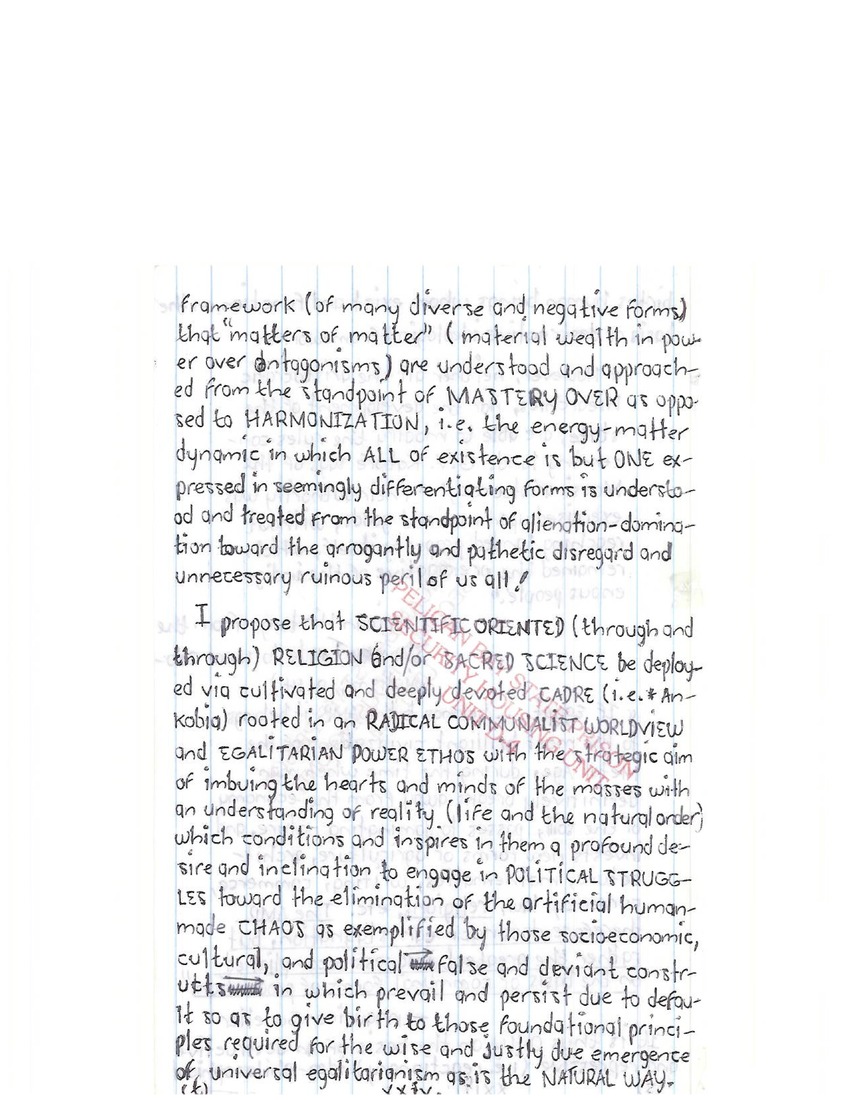 framework (of many diverse and negative forms)
that "matters of matter" (material wealth in pow-
er over antagonisms) are understood and approach-
ed from the standpoint of MASTERY OVER as oppo-
sed to HARMONIZATION, i.e. the energy-matter
dynamic in which ALL of existence is but ONE ex-
pressed in seemingly differentiating forms is understo-
od and treated from the standpoint of alienation-domina-
tion toward the arrogantly and pathetic disregard and
unnecessary ruinous peril of us all!
I propose that SCIENTIFIC ORIENTED (through and
through) RELIGION and/or SACRED SCIENCE be deploy-
ed via cultivated and deeply devoted CADRE (i.e. * An-
kobia) rooted in an RADICAL COMMUNALIST WORLDVIEW
and EGALITARIAN POWER ETHOS with the strategic aim
of imbuing the hearts and minds of the masses with
an understanding of reality (life and the natural order)
which conditions and inspires in them a profound de-
sire and inclination to engage in POLITICAL STRUGG-
LES toward the elimination of the artificial human-
made CHAOS as exemplified by those socioeconomic,
cultural, and political false and deviant constr-
ucts in which prevail and persist due to defau-
lt so as to give birth to those foundational princi-
ples required for the wise and justly due emergence
of universal egalitarianism as is the NATURAL WAY.
xxiv.
PELICAN BAY STATE PRISON
SECURITY HOUSING UNIT